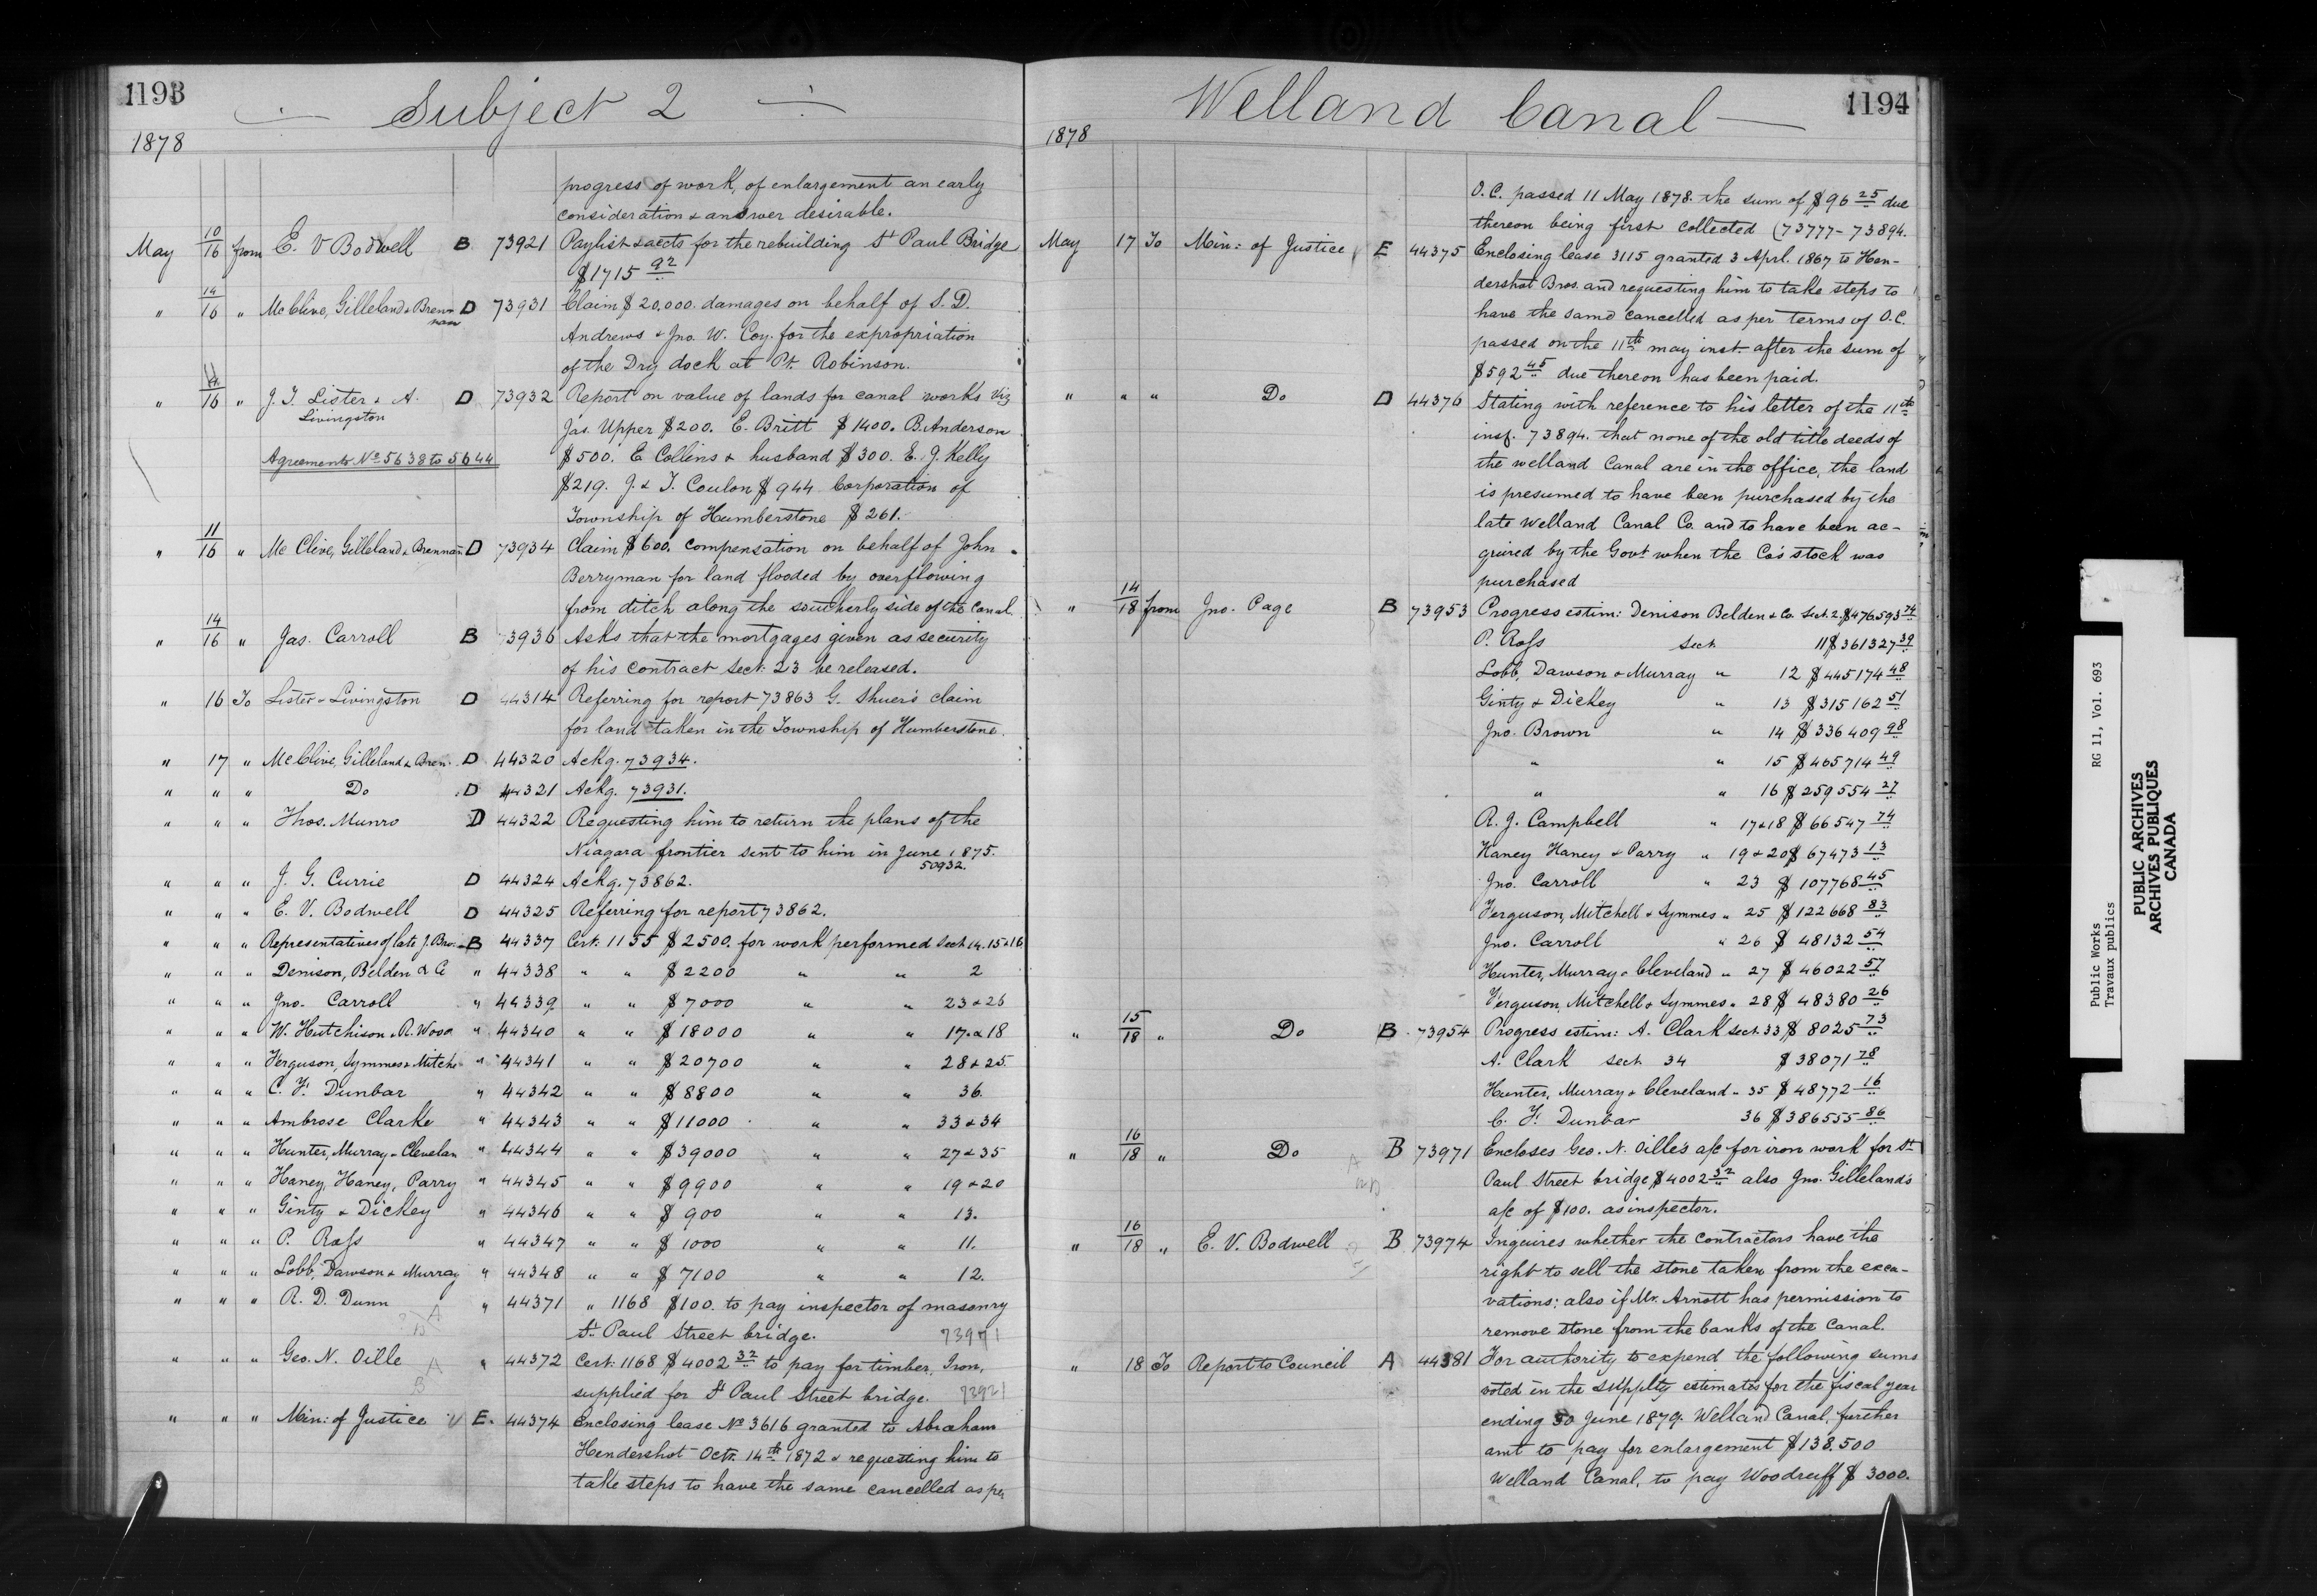 1193
Subject 2
1878
progress of work, of enlargement an early
consideration & answer desirable.
May 10/16 from E. V Bodwell B 73921 Paylist & accts for the rebuilding St Paul Bridge
$1715 92
" 14/16 " McClive, Gilleland & Brennan D 73931 Claim $20,000. damages on behalf of S. D.
Andrews & Jno. W. Coy. for the expropriation
of the Dry dock at Pt. Robinson.
" 16 " J. T. Lister & A. Livingston D 73932 Report on value of lands for canal works viz
Jas. Upper $200. E. Britt $1400. B. Anderson
Agreements No 5638 to 5644 $500. E Collins & husband $300. E. J. Kelly
$219. J. & T. Coulon $944 Corporation of
Township of Humberstone $261.
" 11/16 " Mc Clive, Gilleland & Brennan D 73934 Claim $600. compensation on behalf of John
Berryman for land flooded by overflowing
from ditch along the southerly side of the Canal.
" 14/16 " Jas. Carroll B 3936 Asks that the mortgages given as security
of his contract Sect. 23 be released.
" 16 To Lister & Livingston D 44314 Referring for report 73863 G. Shuer's claim
for land taken in the Township of Humberstone.
" 17 " McClive, Gilleland & Bren. D 44320 Ackg. 73934.
" " " Do D 44321 Ackg. 73931.
" " " Thos. Munro D 44322 Requesting him to return the plans of the
Niagara frontier sent to him in June 1875.
50932.
" " " J. G. Currie D 44324 Ackg. 73862.
" " " E. V. Bodwell D 44325 Referring for report 73862.
" " " Representatives of late J. Bro. B 44337 Cert. 1155 $2500. for work performed Sect 14.15&16
" " " Denison, Belden & C " 44338 " " $2200 " " 2
" " " Jno. Carroll " 44339 " " $7000 " " 23 & 26
" " " W. Hutchison & R. Wood " 44340 " " $18000 " " 17. & 18
" " " Ferguson, Symmes & Mitche " 44341 " " $20700 " " 28 & 25.
" " " C. F. Dunbar " 44342 " " $8800 " " 36.
" " " Ambrose Clarke " 44343 " " $11000 " " 33 & 34
" " " Hunter, Murray & Clevelan " 44344 " " $39000 " " 27 & 35
" " " Haney, Haney, Parry " 44345 " " $9900 " " 19 & 20
" " " Ginty & Dickey " 44346 " " $900 " " 13.
" " " P. Ross " 44347 " " $1000 " " 11.
" " " Lobb, Dawson & Murray " 44348 " " $7100 " " 12.
" " " R. D. Dunn " 44371 " 1168 $100. to pay inspector of masonry
St. Paul Street bridge. 73971
" " " Geo. N. Oille " 44372 Cert. 1168 $4002 32 to pay for timber, Iron,
supplied for St Paul Street bridge.
" " " Min: of Justice E. 44374 Enclosing lease No 3616 granted to Abraham
Hendershot Octr. 14th 1872 & requesting him to
take steps to have the same cancelled as per
Welland Canal
1194
1878
O.C. passed 11 May 1878. the sum of $96 25 due
thereon being first collected (73777-73894.
May 17 To Min: of Justice E 44375 Enclosing lease 3115 granted 3 Aprl. 1867 to Hen-
dershot Bros. and requesting him to take steps to
have the same cancelled as per terms of O.C.
passed on the 11th may inst. after the sum of
$592 45 due thereon has been paid.
" " " Do D 44376 Stating with reference to his letter of the 11th
inst. 73894. that none of the old title deeds of
the welland Canal are in the office, the land
is presumed to have been purchased by the
late Welland Canal Co. and to have been ac-
quired by the Govt when the Co's stock was
purchased
" 14/18 from Jno. Page B 73953 Progress estim: Denison Belden & Co. Sect. 2. $476,593 74
P. Ross Sect. 11 $361327 39
Lobb, Dawson & Murray " 12 $445174 48
Ginty & Dickey " 13 $315162 51
Jno. Brown " 14 $336409 98
" " 15 $465714 49
" " 16 $259554 27
R. J. Campbell " 17&18 $66547 74
Haney Haney & Parry " 19 & 20 $67473 13
Jno. Carroll " 23 $107768 45
Ferguson, Mitchell & Symmes " 25 $122668 83
Jno. Carroll " 26 $48132 54
Hunter, Murray & Cleveland " 27 $46022 57
Ferguson, Mitchell & Symmes " 28 $48380 26
" 15/18 " Do B 73954 Progress estim: A. Clark Sect. 33 $8025 73
A. Clark Sect. 34 $38071 78
Hunter, Murray & Cleveland " 35 $48772 16
C. F. Dunbar 36 $386555 86
" 16/18 " Do B 73971 Encloses Geo. N. Oille's a/c for iron work for St
Paul Street bridge $4002 32 also Jno. Gilleland's
a/c of $100. as inspector.
" 16/18 " E. V. Bodwell B 73974 Inquires whether the contractors have the
right to sell the stone taken from the exca-
vations; also if Mr. Arnott has permission to
remove stone from the banks of the Canal.
" 18 To Report to Council A 44381 For authority to expend the following sums
voted in the supplty estimates for the fiscal year
ending 30 June 1879. Welland Canal, further
amt to pay for enlargement $138.500
Welland Canal, to pay Woodruff $3000.
Public Works RG 11, Vol. 693
Travaux publics
PUBLIC ARCHIVES
ARCHIVES PUBLIQUES
CANADA